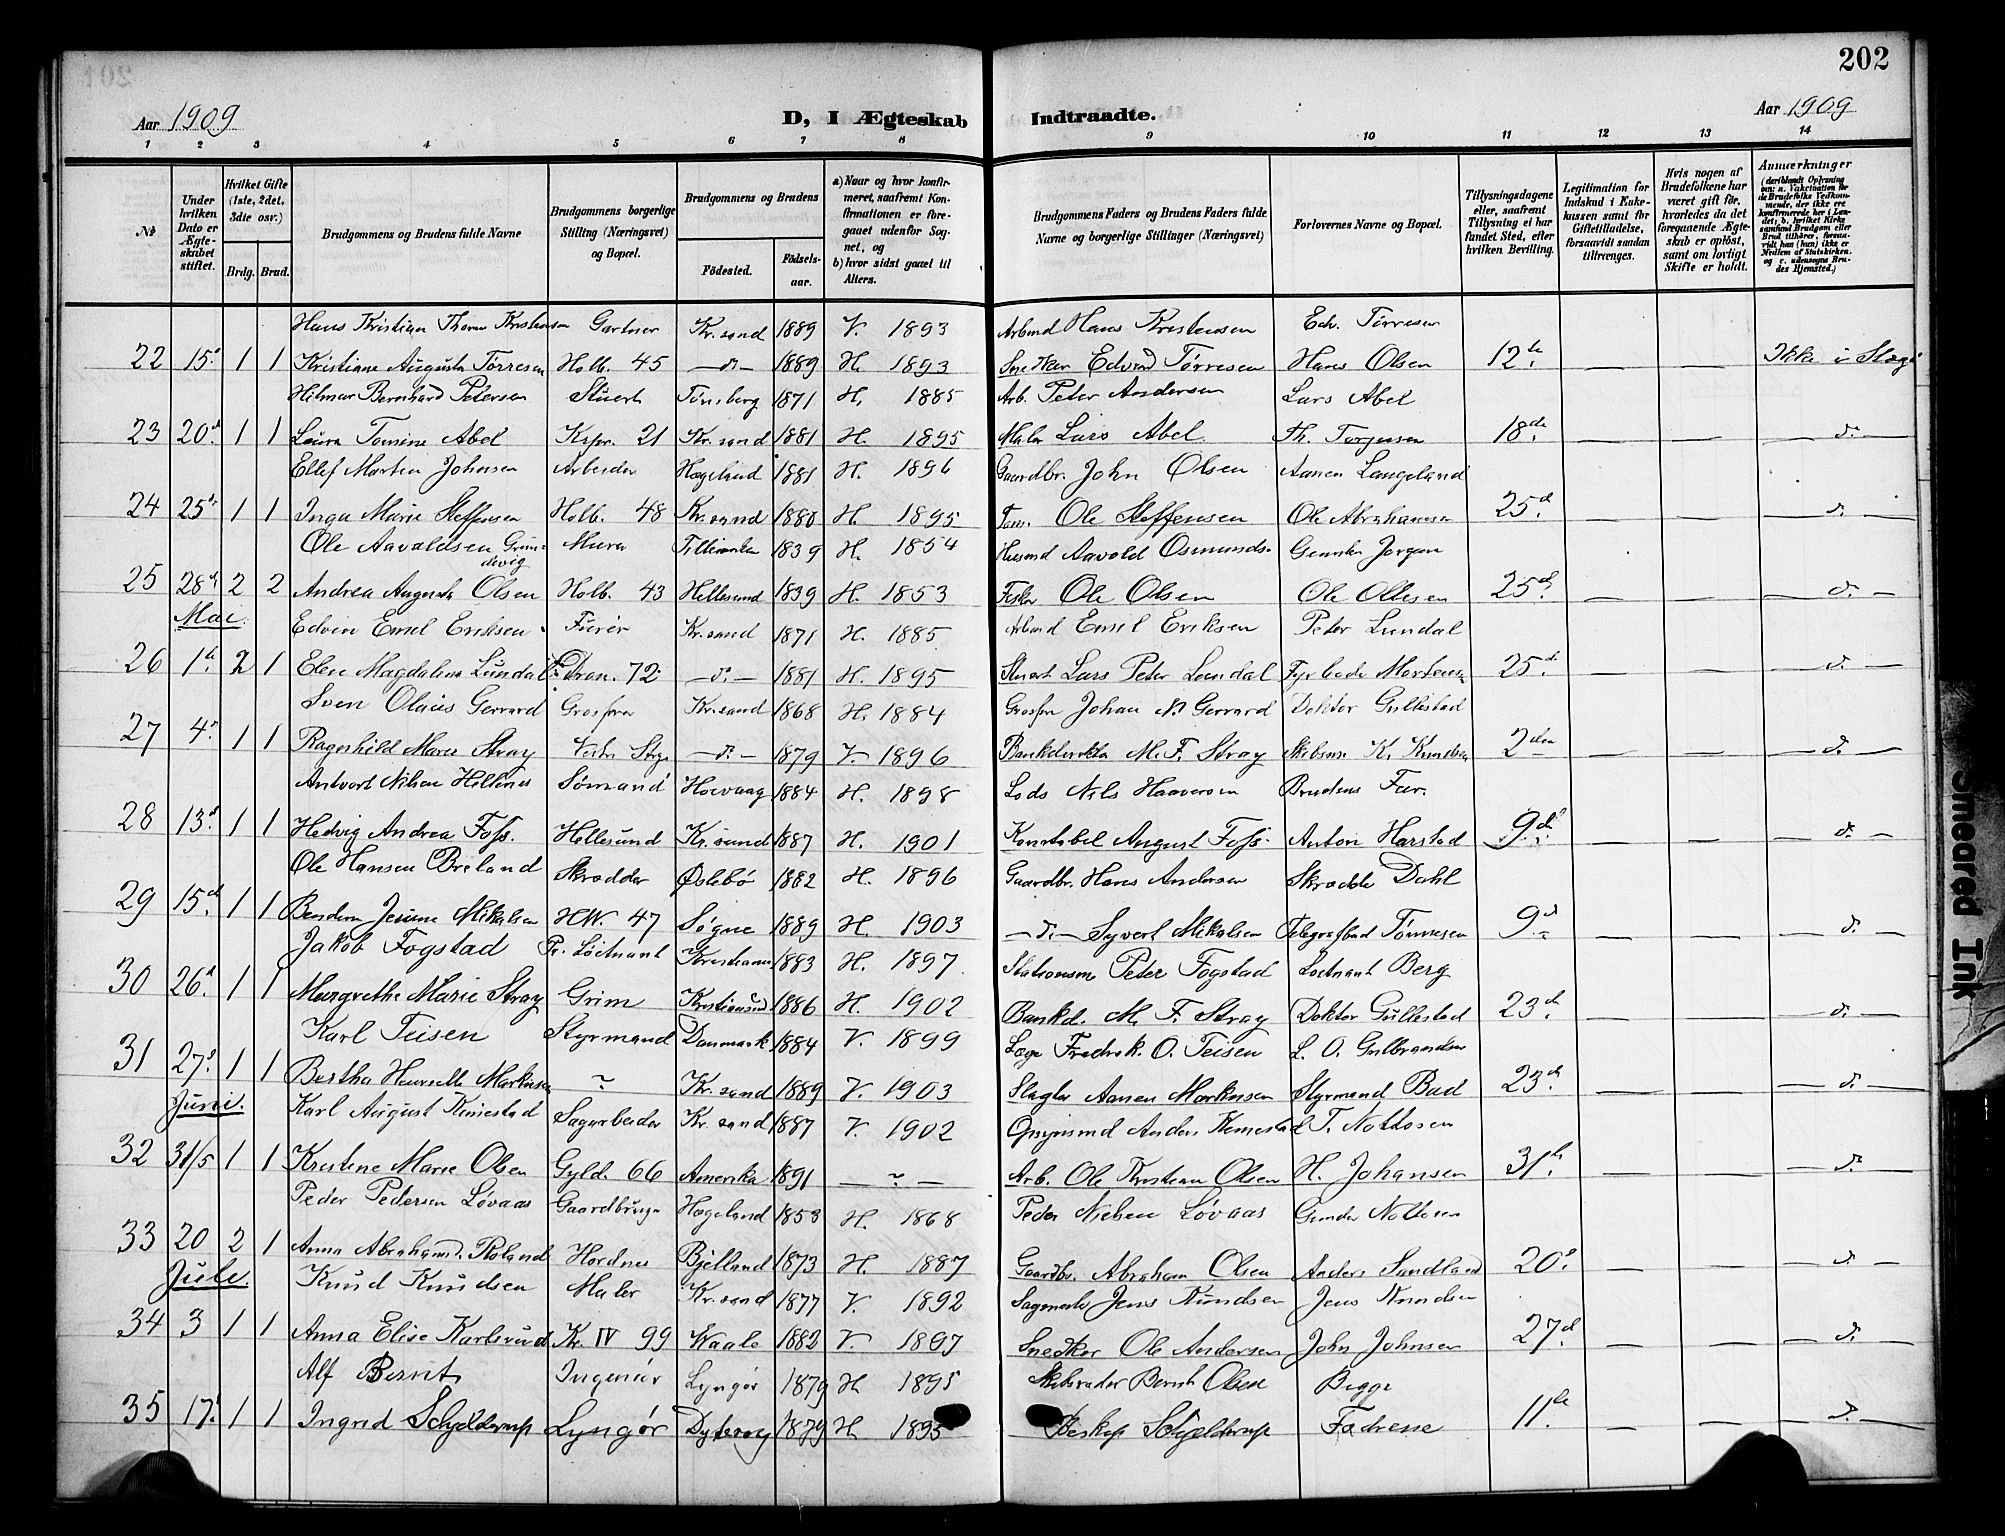 202
Aar 1909 D, I Ægteskab Indtraadte. Aar 1909
1 2 3 4 5 6 7 8 9 10 11 12 13 14
№
Under hvilken Dato er Ægteskabet stiftet.
Hvilket Gifte (1ste, 2det, 3die osv.)
Brdg. Brud.
Brudgommens og Brudens fulde Navne
Brudgommens borgerlige Stilling (Næringsvei) og Bopæl.
Brudgommens og Brudens
Fødested. Fødselsaar.
a) Naar og hvor konfirmeret, saafremt Konfirmationen er foregaaet udenfor Sognet, og
b) hvor sidst gaaet til Alters.
Brudgommens Faders og Brudens Faders fulde Navne og borgerlige Stillinger (Næringsvei)
Forlovernes Navne og Bopæl.
Tillysningsdagene eller, saafremt Tillysning ei har fundet Sted, efter hvilken Bevilling.
Legitimation for Indskud i Enkekassen samt for Giftetilladelse, forsaavidt saadan tiltrænges.
Hvis nogen af Brudefolkene har været gift før, hvorledes da det foregaaende Ægteskab er opløst, samt om lovligt Skifte er holdt.
Anmærkninger
(deriblandt Oplysning om: a. Vakcination for de Brudefolks Vedkommende, der ikke ere konfirmerede her i Landet; b. hvilket Kirkesamfund Brudgom eller Brud tilhører, forsaavidt han (hun) ikke er Medlem af Statskirken, og c. udensogns Brudes Hjemsted.)
Hans Kristian Thorn Kristensen Gartner Kr.sand 1889 V. 1893 Arbmd Hans Kristensen Edv. Tørresen
22 15. 1 1 Kristiane Augusta Tørresen Holb. 45 — d. — 1889 H. 1893 Snedker Edvard Tørresen Hans Olsen 12te — — Ikke i Slægt
Hilmar Bernhard Petersen Stuert Tønsberg 1871 H. 1885 Arb. Peter Andersen Lars Abel
23 20d 1 1 Laura Tomine Abel Kspr. 21 Kr.sand 1881 H. 1895 Maler Lars Abel Th. Torjusen 18de — — — d. —
Ellef Martin Johnsen Arbeider Hægeland 1881 H. 1896 Gaardbr. John Olsen Aanen Langeland
24 25d 1 1 Inga Marie Steffensen Holb. 48 Kr.sand 1880 H. 1895 Tøm. Ole Steffensen Ole Abrahamsen 25d — — — d. —
Ole Aavaldsen Grundevig Murer 1839 H. 1854 Husmd Aavold Osmunds. Gunster Jørgen
25 28d 2 2 Andrea Augusta Olsen Holb. 43 Hellesund 1839 H. 1853 Fisker Ole Olsen Ole Ollesen 25d — — — d. —
Mai.
Edvin Emil Eriksen Furér Kr.sand 1871 H. 1885 Arbmd Emil Eriksen Peter Lundal
26 1te 2 1 Elen Magdalene Lundal Dron. 72 — d. — 1881 H. 1895 Stuert Lars Peter Lundal Fyrbøder Mortensen 25d — — — d. —
Sven Olaüs Gerrard Grosserer Kr.sand 1868 H. 1884 Grosser Johan N. Gerrard Doktor Gullestad
27 4. 1 1 Ragnhild Marie Stray Vester Strg. — d. — 1879 V. 1896 Bankdirektør M. F. Stray Skibsm. K. Knudsen 2den — — — d. —
Antvort Nilsen Hillenes Sømand Høivaag 1884 H. 1898 Lods Nils Haaversen Brudens Far.
28 13d 1 1 Hedvig Andrea Foss. Hellesund Kr.sund 1887 H. 1901 Konstabel August Foss. Anton Harstad 9d — — — d. —
Ole Hansen Breland Skrædder Øslebø 1882 H. 1896 Gaardbr. Hans Andersen Skrædder Dahl
29 15d 1 1 Bendine Jensine Mikalsen H.W. 47 Søgne 1889 H. 1903 — d. — Syvert Mikalsen Telegrafbud Tønnesen 9d — — — d. —
Jakob Fogstad Pr. Løitnant Kristiania 1883 H. 1897 Stationsm Peter Fogstad Løitnant Berg
30 26d 1 1 Margrethe Marie Stray Grim Kristiansund 1886 H. 1902 Bankd. M. F. Stray Doktor Gullestad 23d — — — d. —
Karl Teisen Styrmand Danmark 1884 V. 1899 Læge Fredrik O. Teisen L. O. Gulbrandsen
31 27d 1 1 Bertha Henriette Markusen Kr.sand 1889 V. 1903 Slagter Aanen Markusen Styrmand Bad 23d — — — d. —
Juni.
Karl August Kimestad Sagarbeider Kr.sand 1887 V. 1902 Anders Kimestad T. Nottosen
32 31/5 1 1 Kristine Marie Olsen Gyld. 66 Amerika 1891 — " — Arb. Ole Kristian Olsen H. Johansen 31te — — — d. —
Peder Pedersen Løvaas Gaardbruger Hægeland 1853 H. 1868 Peder Nielsen Løvaas Gunder Nottosen
33 20 2 1 Anna Abrahamsd. Roland Hordnes Bjelland 1873 H. 1887 Gaardbr. Abraham Olsen Anders Sandland 20d — — — d. —
Jule.
Knud Knudsen Maler Kr.sand 1877 V. 1892 Sagmester Jens Knudsen Jens Knudsen
34 3 1 1 Anna Elise Karlsrud Kv. IV 99 Vaale 1882 V. 1897 Snedker Ole Andersen John Johnsen 27d — — — d. —
Alf Bernt Ingeniør Lyngør 1879 H 1895 Skibsreder Bernt Olsen Begge
35 17. 1 1 Ingrid Schjelderup Lyngør Dyterøy 1879 H 1893 Biskop Schjelderup Fædrene 11te — — — d. —
Smeared Ink